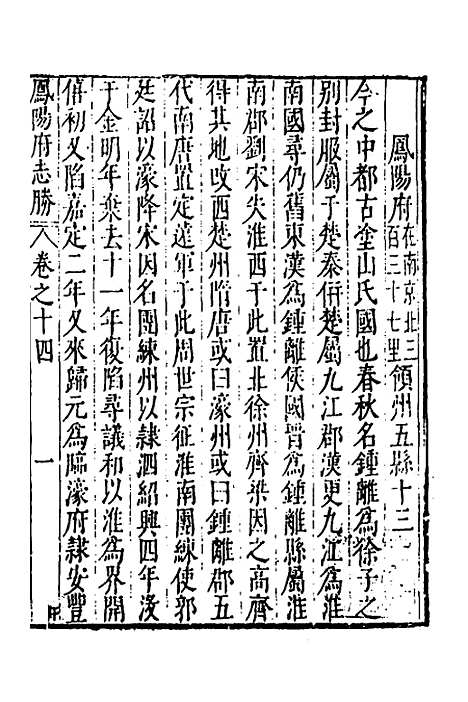 鳳陽府在南京北三百三十七里領州五縣十三
今之中都古塗山氏國也春秋名鍾離爲徐子之
别封服屬于楚秦併楚屬九江郡漢更九江爲淮
南國尋仍舊東漢爲鍾離侯國晋爲鍾離縣屬淮
南郡劉宋失淮西于此置北徐州齊梁因之高齊
得其地改西楚州隋唐或曰濠州或曰鍾離郡五
代南唐置定遠軍于此周世宗征淮南團練使郭
廷詔以濠降宋因名團練州以隷泗紹興四年没
于金明年棄去十一年復陷尋議和以淮爲界開
僖初又陷嘉定二年又來歸元爲臨濠府隷安豐
鳳陽府志勝 卷之十四 一